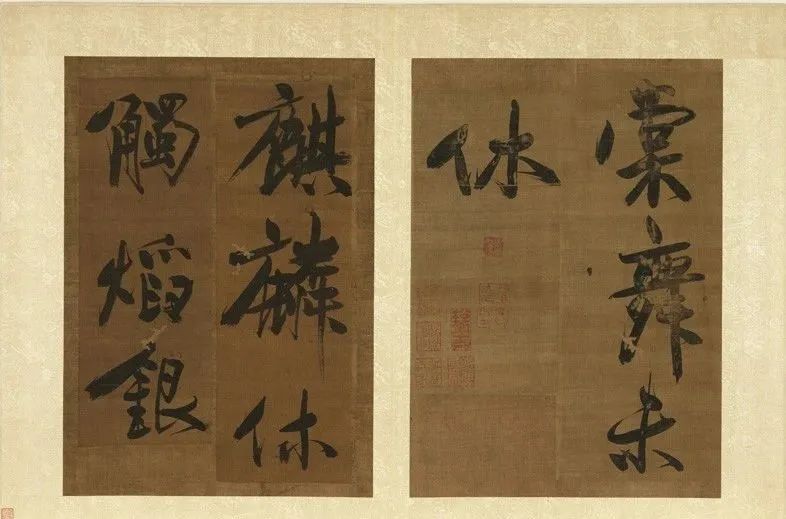 裳舞未
休
麒麟休
觸熖銀